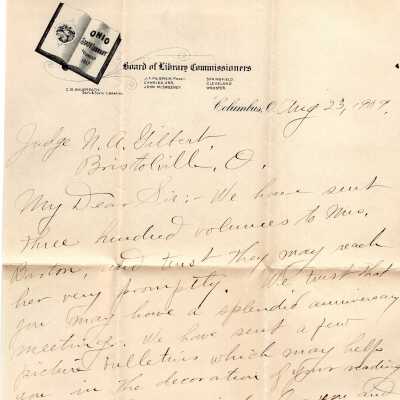 OHIO
STATE LIBRARY
Board of Library Commissioners
J. F. McGrew, Prest.
Charles Orr,
John McSweeney
Springfield,
Cleveland
Wooster.
C. B. Galbreath,
Secy & State Librarian
Columbus, O. Aug 23, 1909.
Judge N. A. Gilbert,
Bristolville, O.
My Dear Sir:- We have sent
three hundred volumes to Mrs.
Barton, and trust they may reach
her very promptly. We trust that
you may have a splendid anniversary
meeting. We have sent a few
picture bulletins which may help
you in the decoration of your reading
you and